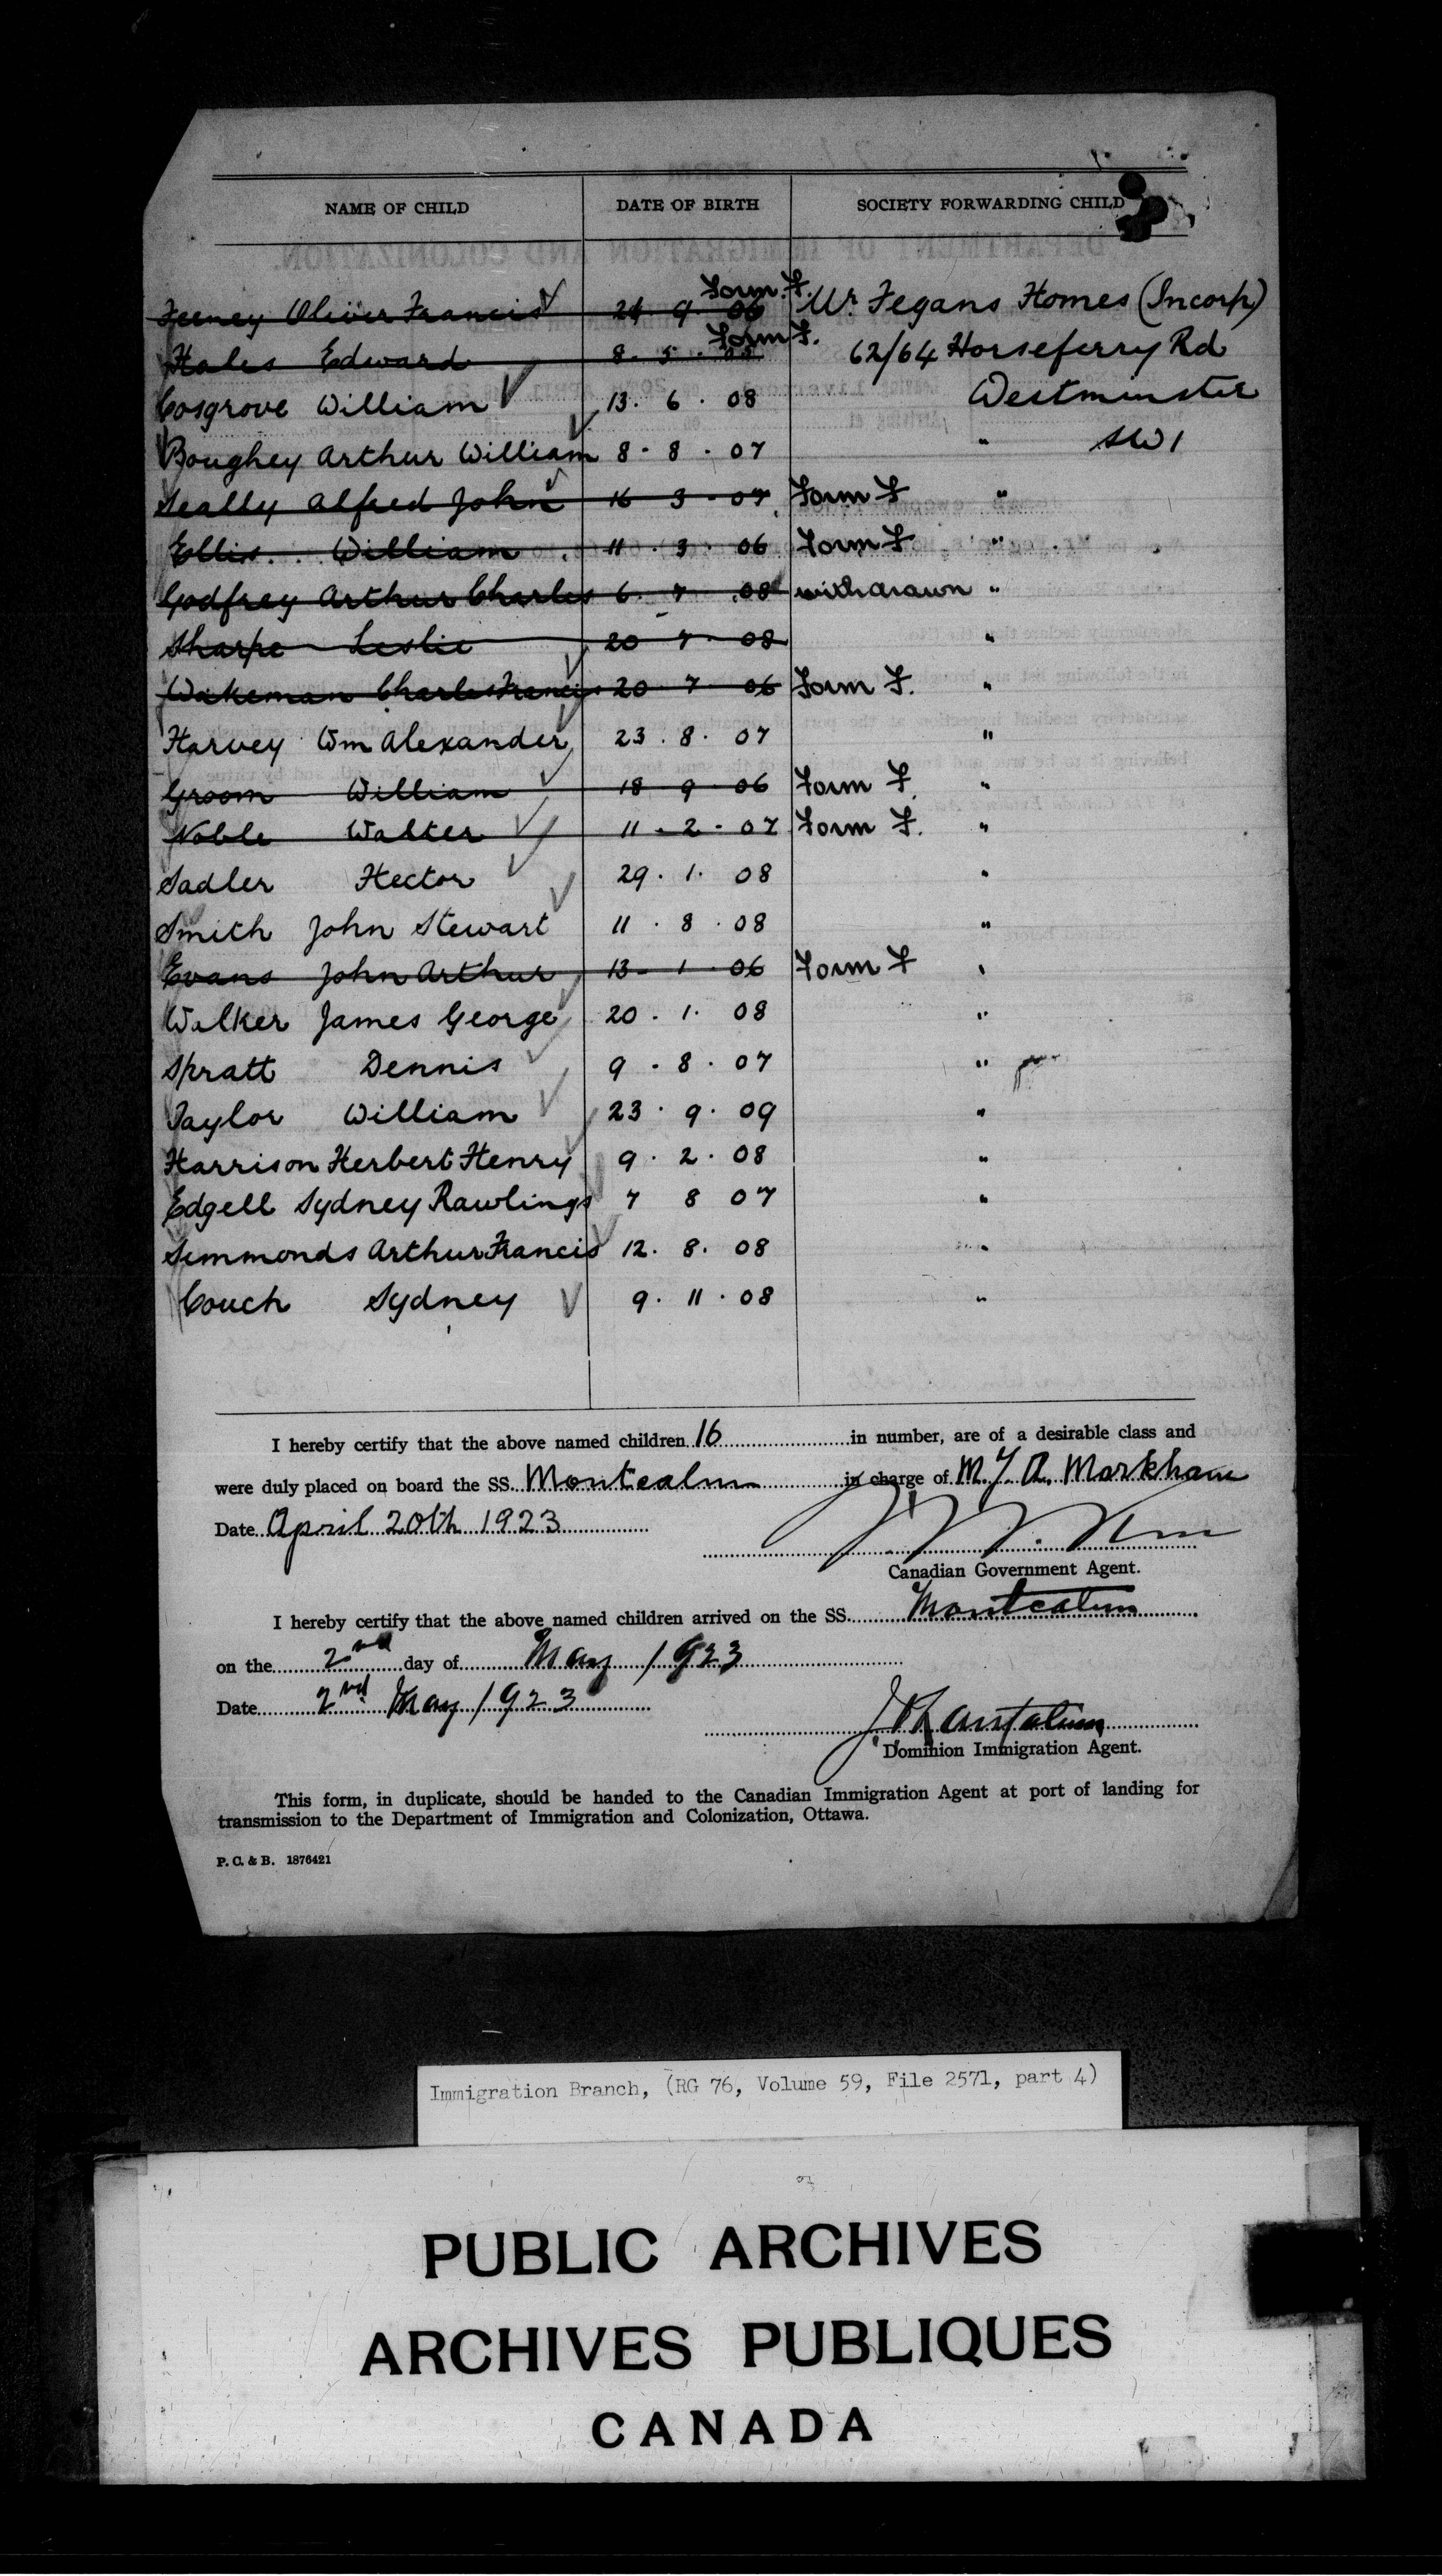 NAME OF CHILD DATE OF BIRTH SOCIETY FORWARDING CHILD
Form F.
Feeney Oliver Francis 24 . 9 . 06 Mr Fegans Homes (Incorp)
Form F.
Hales Edward 8 . 5 . 62/64 Horseferry Rd
Cosgrove William 13 . 6 . 08 Westminster
Boughey Arthur William 8 . 8 . 07 " SW1
Seally Alfred John 16 3 . 07 Form F "
Ellis William 11 . 3 . 06 Form F "
Godfrey Arthur Charles 6 . 7 . 08 withdrawn "
Sharpe Leslie 20 7 . 08 "
Wakeman Charles Francis 20 . 7 . 06 Form F. "
Harvey Wm Alexander 23 . 8 . 07 "
Groom William 18 9 06 Form F. "
Noble Walter 11 . 2 . 07 Form F. "
Sadler Hector 29 . 1 . 08 "
Smith John Stewart 11 . 8 . 08 "
Evans John Arthur 13 . 1 . 06 Form F "
Walker James George 20 . 1 . 08 "
Spratt Dennis 9 . 8 . 07 "
Taylor William 23 . 9 . 09 "
Harrison Herbert Henry 9 . 2 . 08 "
Edgell Sydney Rawlings 7 8 07 "
Simmonds Arthur Francis 12 . 8 . 08 "
Couch Sydney 9 . 11 . 08 "
I hereby certify that the above named children 16 in number, are of a desirable class and
were duly placed on board the SS. Montcalm in charge of Markham
Date April 20th 1923
Canadian Government Agent.
I hereby certify that the above named children arrived on the SS. Montcalm
on the 2nd day of May 1923
Date 2nd May 1923
Dominion Immigration Agent.
This form, in duplicate, should be handed to the Canadian Immigration Agent at port of landing for
transmission to the Department of Immigration and Colonization, Ottawa.
P. C. & B. 1876421
Immigration Branch, (RG 76, Volume 59, File 2571, part 4)
PUBLIC ARCHIVES
ARCHIVES PUBLIQUES
CANADA